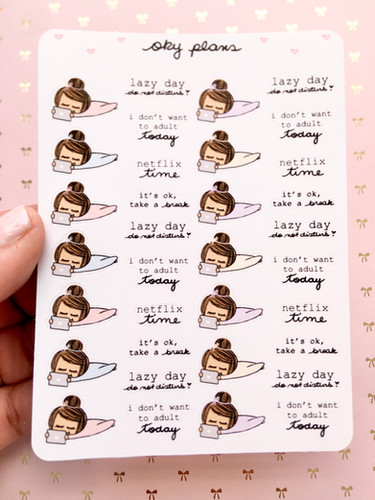 oky plans
lazy day
do not disturb!
i don't want
to adult
today
netflix
time
it's ok,
take a break
lazy day
do not disturb!
i don't want
to adult
today
netflix
time
it's ok,
take a break
lazy day
do not disturb!
i don't want
to adult
today
lazy day
do not disturb!
i don't want
to adult
today
netflix
time
it's ok,
take a break
lazy day
do not disturb!
i don't want
to adult
today
netflix
time
it's ok,
take a break
lazy day
do not disturb!
i don't want
to adult
today